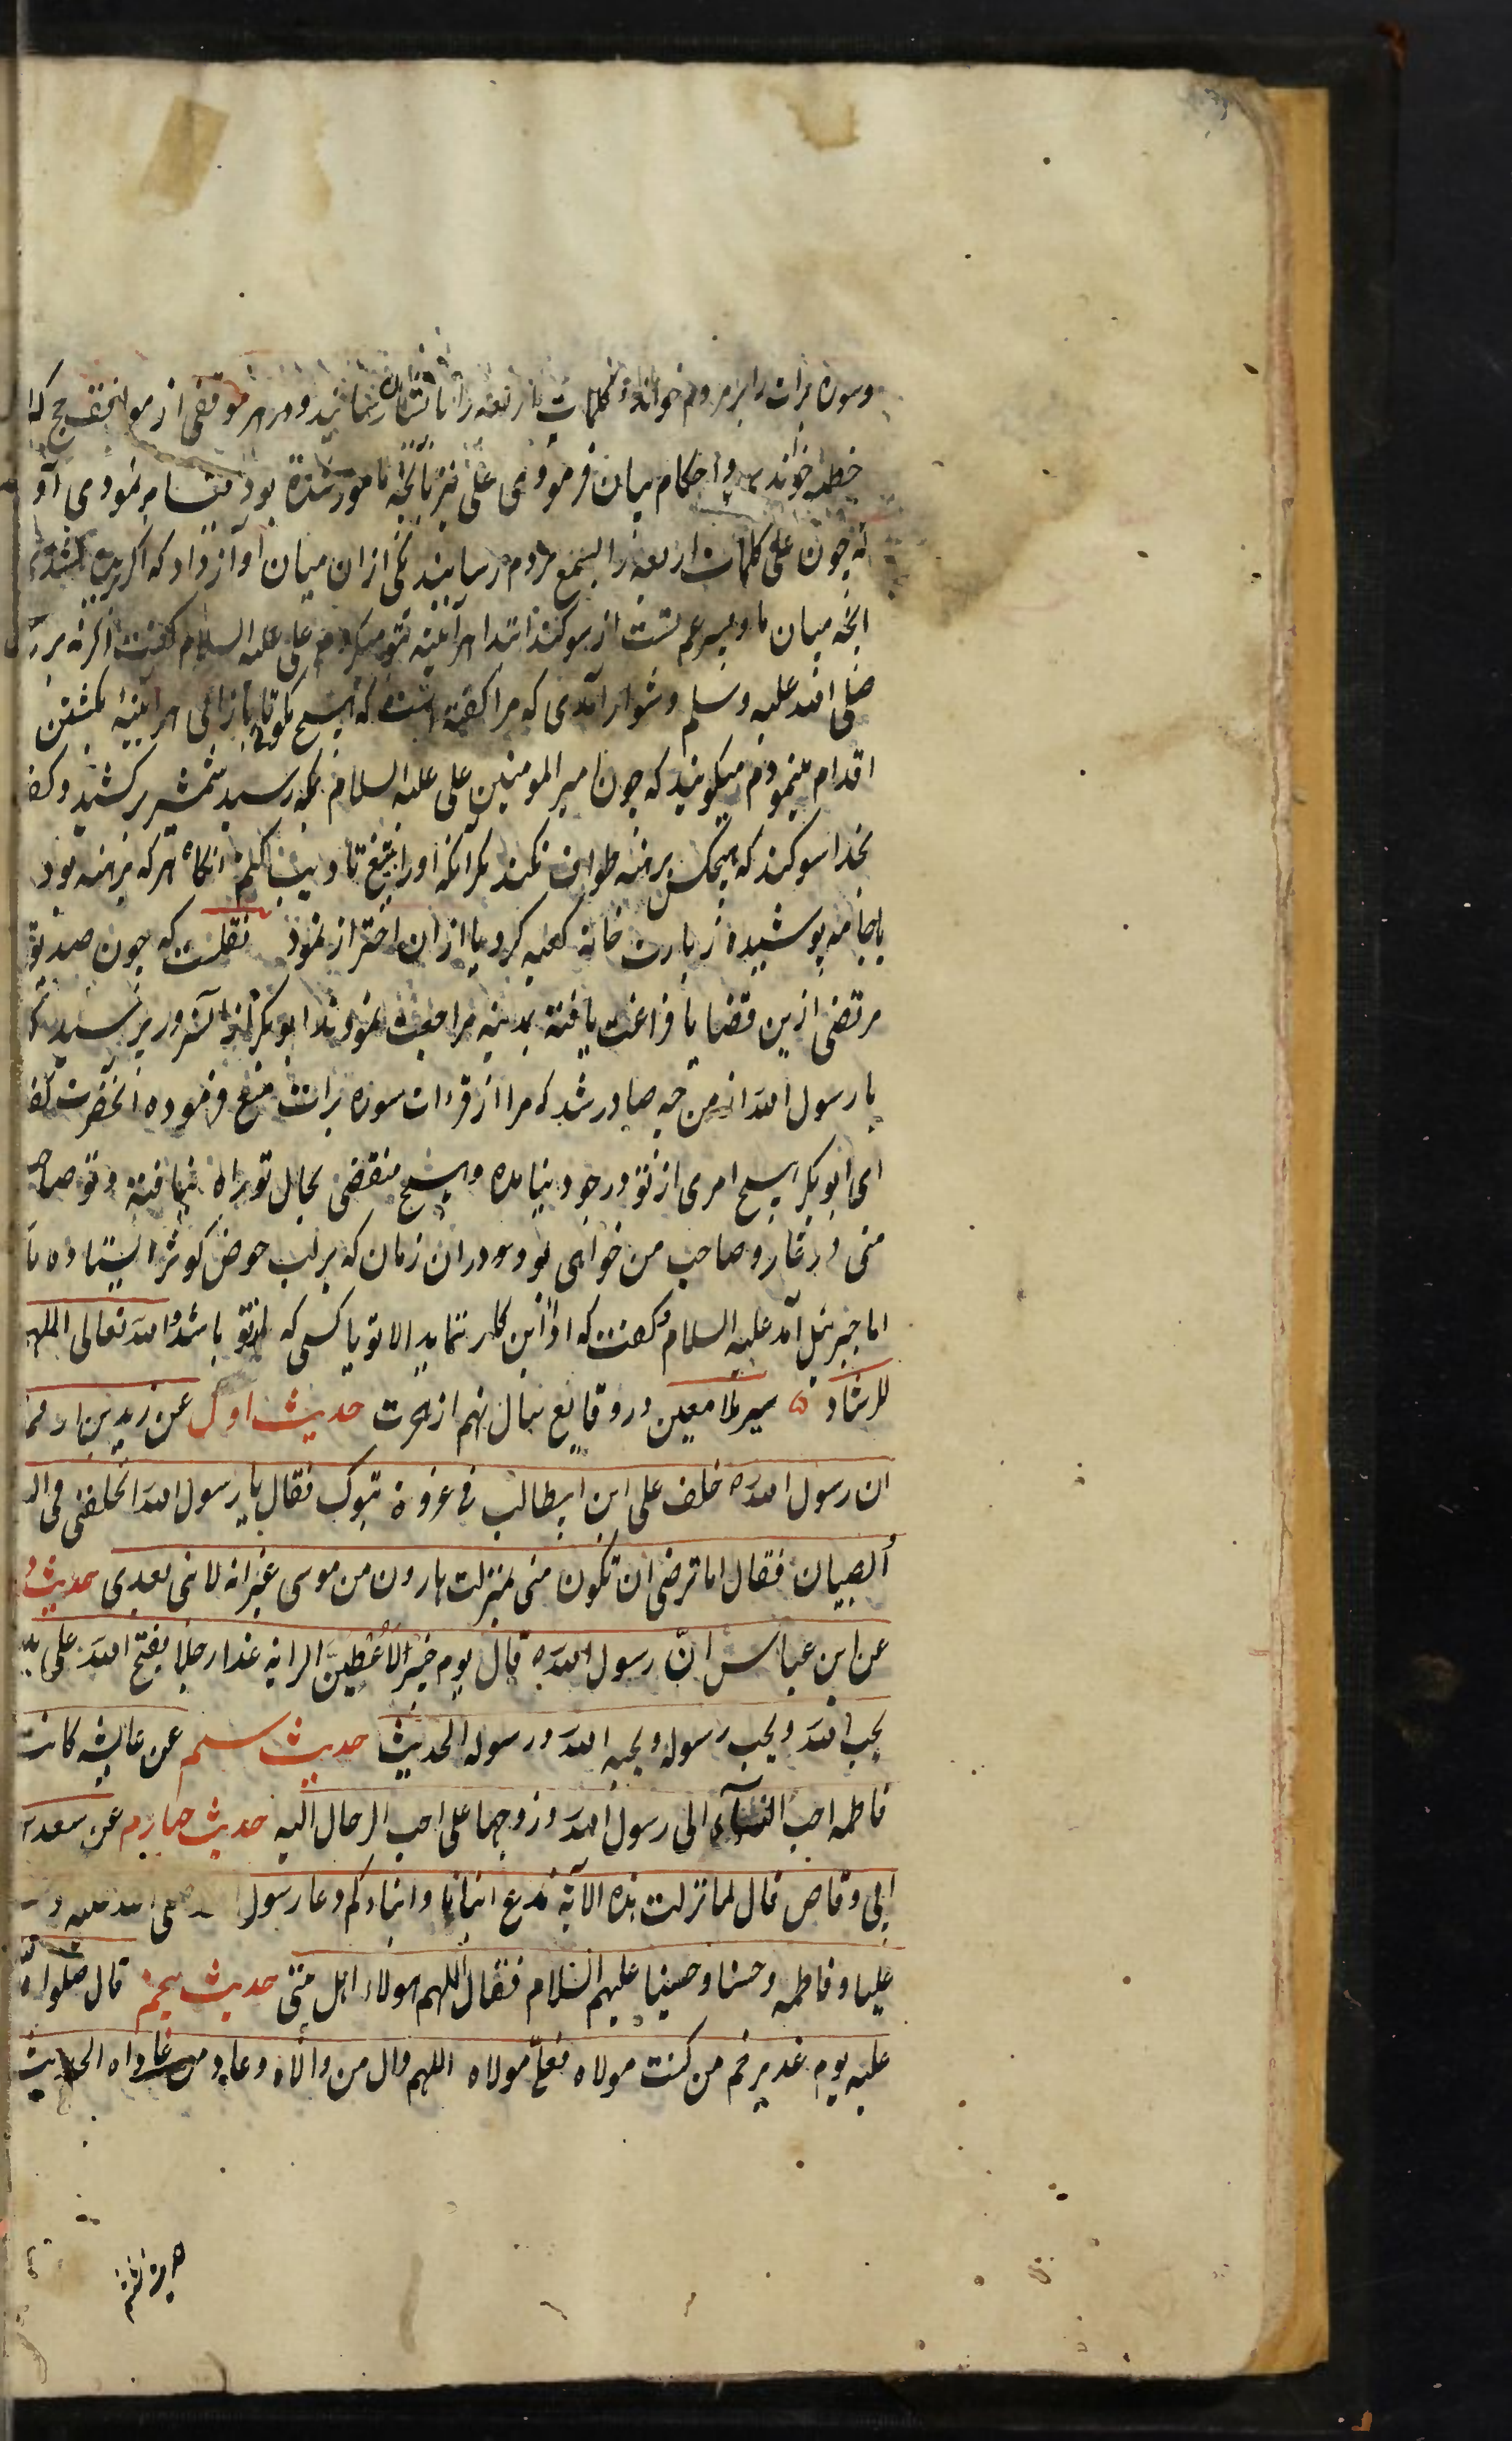 وسوره برات را بر مردم خواند و کلمات اربعه را بایشان رسانید و در هر موقفی از مواقف حج که
خطبه خواندی و احکام بیان فرمودی علی نیز بآنچه مامور شده بود قیام نمودی آو
نه چون علی کلمات اربعه را بسمع مردم رسانید یکی ازان میان آواز داد که اگر
انچه میان ما و پسر عم تست از سوکند ابتدا هرآینه بتو میکردم علی علیه السلام کفت اکر نه بر
صلی الله علیه وسلم دشوار آمدی که مرا کفته است که هیچ مکوی تا بازآئی هرآینه بکشتن
اقدام مینمودم میکویند که چون امیر المومنین علی علیه السلام بمکه رسید شمشیر برکشید و کف
بخدا سوکند که هیچکس برهنه طواف نکند مکر آنکه او را بتیغ تادیب کنم انکاه هر که برهنه بود
یا جامه پوشیده زیارت خانه کعبه کرد یا ازان احتراز نمود نقلست که چون صدیق
مرتضی ازین قضایا فراغت یافته بمدینه مراجعت نمودند ابوبکر از آنسرور پرسید که
یا رسول الله از من چه صادر شد که مرا از قراءت سوره برات منع فرموده آنحضرت کف
ای ابوبکر هیچ امری از تو در وجود نیامده و هیچ منقضی بحال تو راه نیافته و تو صاحب
منی در غار و صاحب من خواهی بود و در ان زمان که بر لب حوض کوثر ایستاده با
اما جبرئیل آمد علیه السلام و کفت که ادا این کار ننماید الا تو یا کسی که از تو باشد والله تعالی الملهم
للرشاد ه سیر ملا معین در وقایع سال نهم از هجرت حدیث اول عن زید بن ارقم
ان رسول الله خلف علی ابن ابیطالب فی غزوة تبوک فقال یا رسول الله اتخلفنی فی ال
الصبیان فقال اما ترضی ان تکون منی بمنزلت هارون من موسی غیر انه لا نبی بعدی حدیث
عن ابن عباس انّ رسول الله قال یوم خیبر لاُعْطِیَنَّ الرایه غدا رجلا یفتح الله علی ید
یحب الله و یحب رسوله و یحبه الله و رسوله الحدیث حدیث سیم عن عایشه کانت
فاطمه احب النسآء الی رسول الله و زوجها علی احب الرجال الیه حدیث چهارم عن سعد
ابی وقاص قال لما نزلت هذه الآیة ندع ابنانا و ابناءکم دعا رسول الله صلی الله علیه و
علیا و فاطمه و حسنا و حسینا علیهم السلام فقال اللهم هولاء اهل بیتی حدیث پنجم قال صلواة
علیه یوم غدیر خم من کنت مولاه فعلیّ مولاه اللهم وال من والاه و عاد من عاداه الحدیث